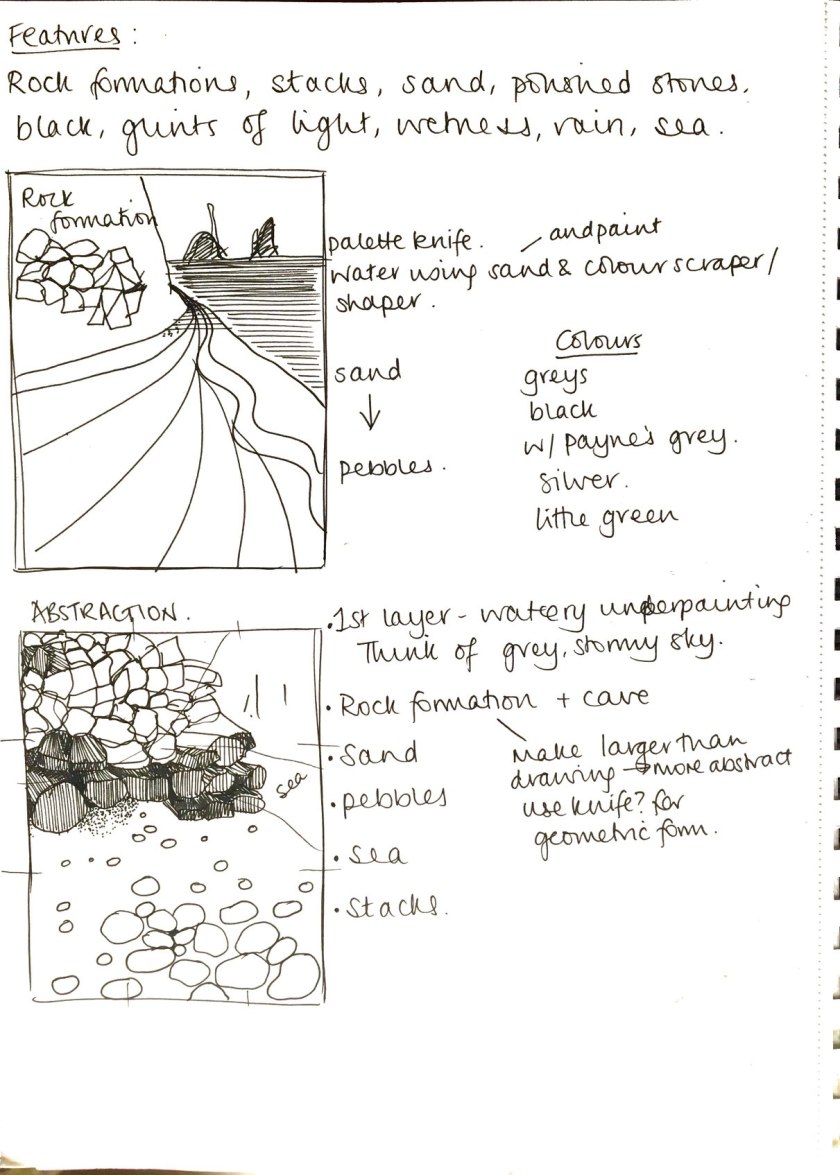 Features:
Rock formations, stacks, sand, polished stones.
black, glints of light, wetness, rain, sea.
Rock
formation
palette knife.
and paint
water using sand & colour scraper/
shaper.
Colours
sand
greys
↓
black
w/ Payne's grey.
pebbles.
silver.
little green
ABSTRACTION.
• 1st layer - watery underpainting
Think of grey, stormy sky.
• Rock formation + cave
Make larger than
• Sand
drawing → more abstract
sea
• pebbles
use knife? for
geometric form.
• sea
• Stacks.